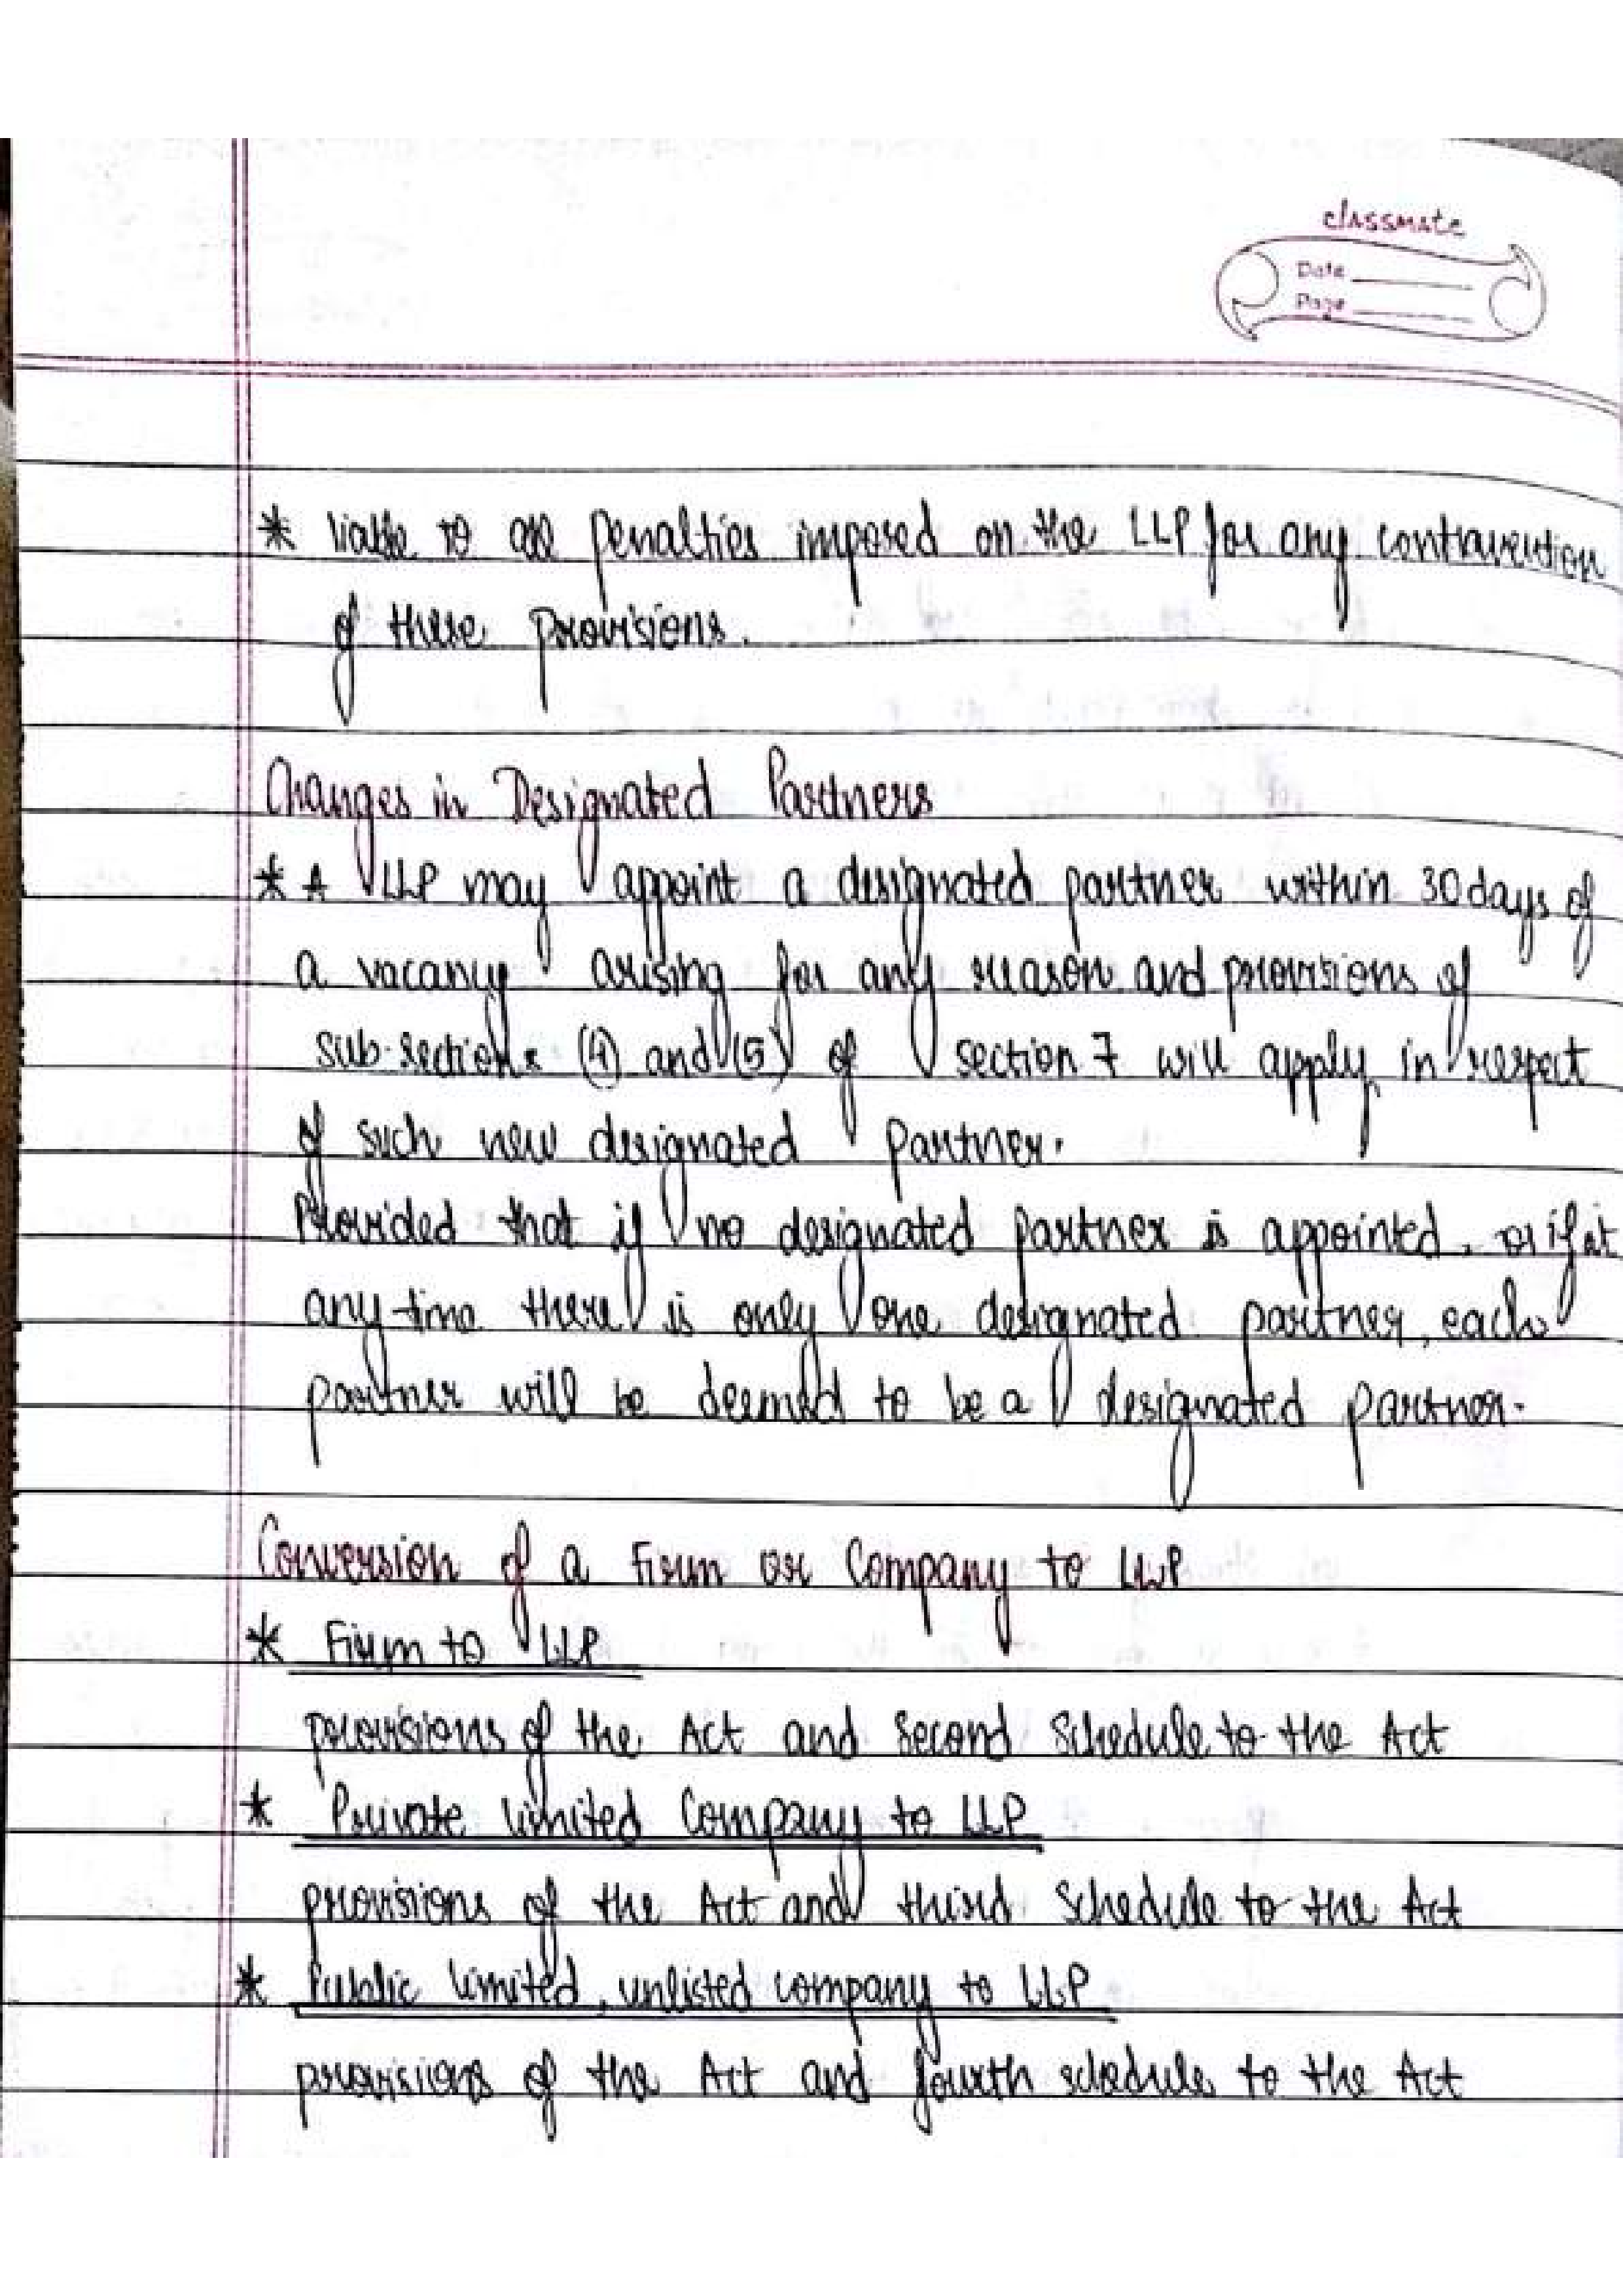 classmate
Date
Page
* liable to all penalties imposed on the LLP for any contravention
of these provisions.
Changes in Designated Partners
* A LLP may appoint a designated partner within 30 days of
a vacancy arising for any reason and provisions of
sub-sections (4) and (5) of section 7 will apply in respect
of such new designated partner.
Provided that if no designated partner is appointed, or if at
any time there is only one designated partner, each
partner will be deemed to be a designated partner.
Conversion of a Firm or Company to LLP
* Firm to LLP
provisions of the Act and Second Schedule to the Act
* Private limited Company to LLP
provisions of the Act and third Schedule to the Act
* Public limited, unlisted company to LLP
provisions of the Act and fourth schedule to the Act